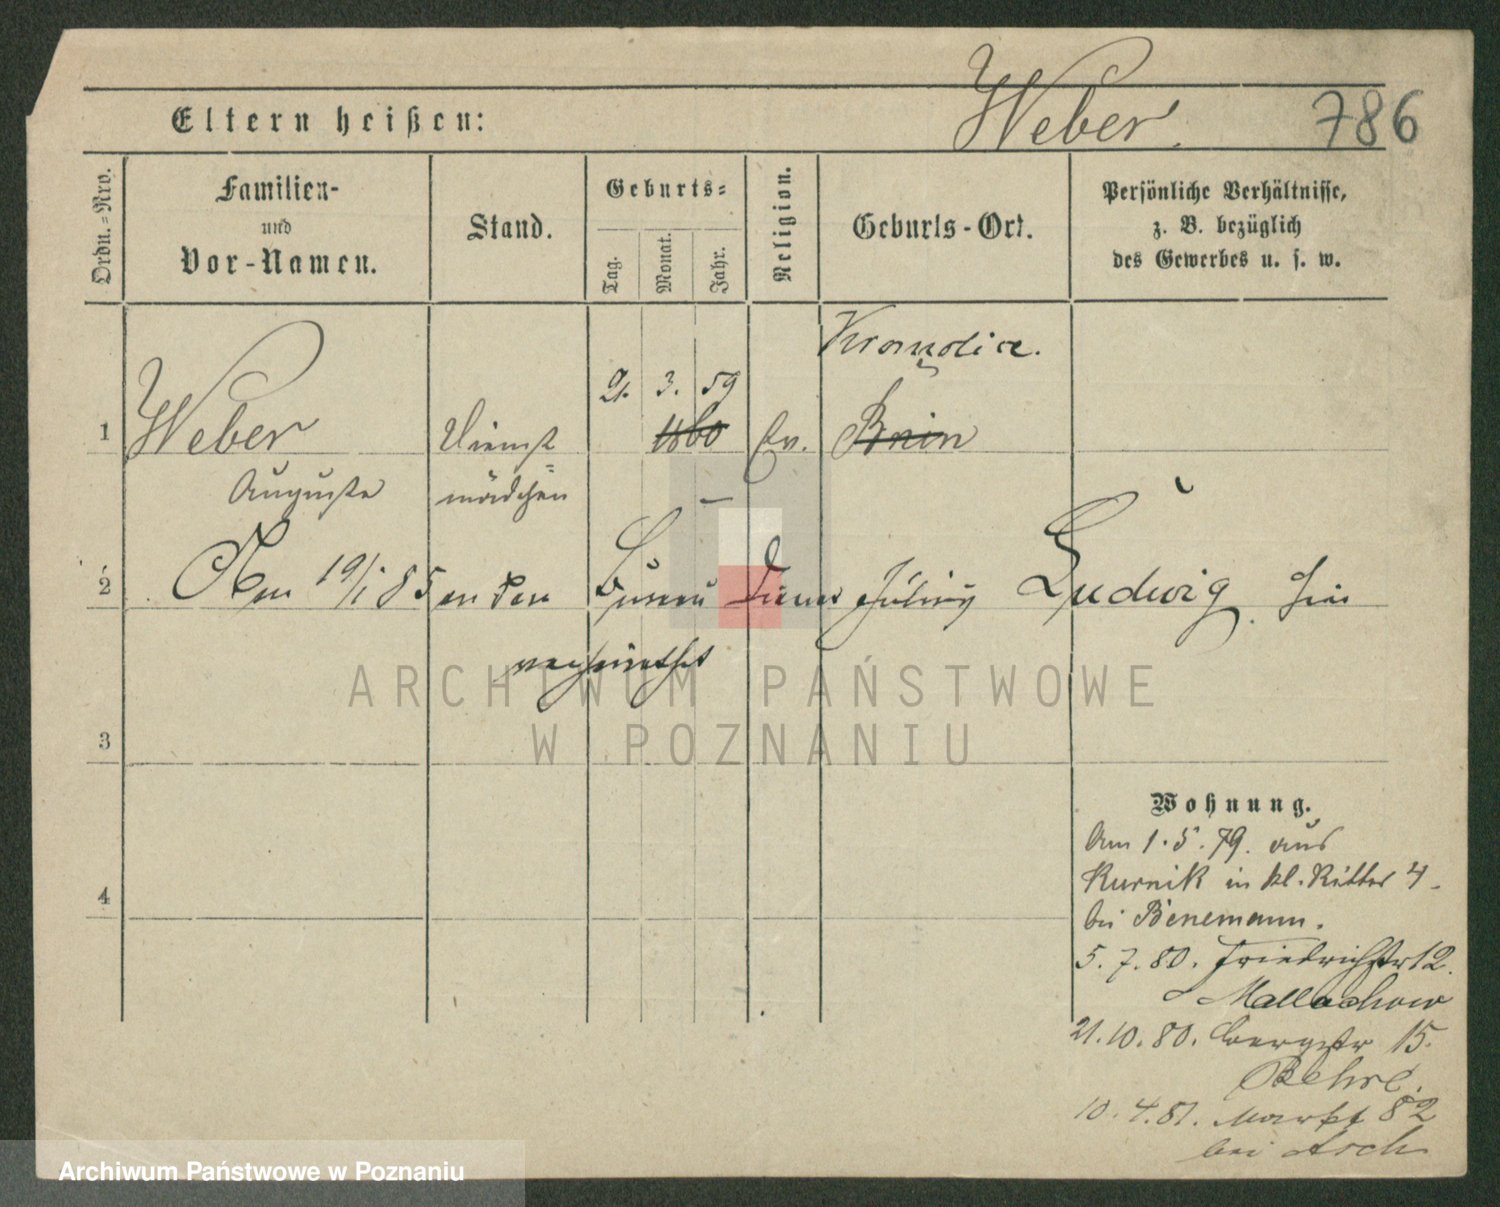 Weber.
786
Eltern heißen:
Ordn.-Nro.
Familien-
und
Vor-Namen.
Stand.
Geburts-
Tag.
Monat.
Jahr.
Religion.
Geburts-Ort.
Persönliche Verhältnisse,
z. B. bezüglich
des Gewerbes u. s. w.
3. 59
1 Weber Dienst 1860 Ev. Bnin
Auguste mädchen
2 19/1 85 an den Bureau Diener Julius Ludwig hier
verheirathet
3
4
Wohnung.
Am 1.5.79. aus
Kurnik in kl. Ritter 4.
bei Benemann.
5.7.80. Friedrichstr 12.
Mallachow
21.10.80. Bergstr 15.
Behre.
10.4.81. Markt 82
bei Asch
ARCHIWUM PAŃSTWOWE
W POZNANIU
Archiwum Państwowe w Poznaniu